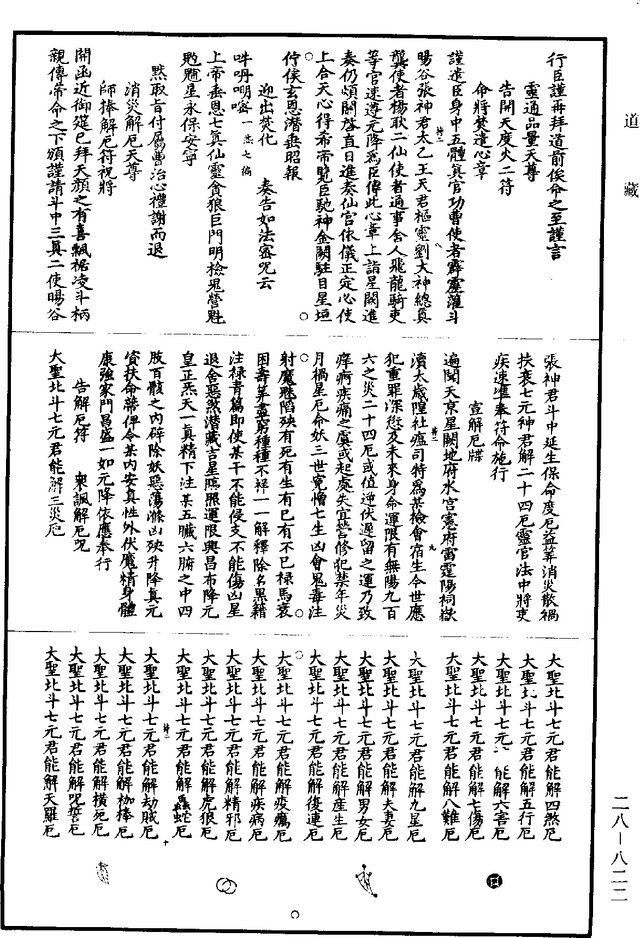 道藏
行臣謹再拜道前俟命之至謹言
靈通品量天尊
告開天度火二符
命將焚達心章
謹遣臣身中五體真官功曹使者霹靂藿斗
暘谷張神君太乙王天君樞靈劉大神總真
龔使者楊耿二仙使者通事舍人飛龍騎吏
等官速遵元降為臣傳此心章上詣星闕進
奏仍煩開啓直日進奏仙官依儀正定心使
上合天心得希帝覽臣馳神金闕駐日星垣
佇俟玄恩潛垂昭報
迎出焚化 奏告如法密咒云
吽吽唧㗭 一炁七徧
上帝垂恩七真仙靈貪狼巨門明檢鬼營魁
魓魒星永保安寧
默取旨付屬曹治心禮謝而退
消災解厄天尊
師捧解厄符祝將
開函近御筵已拜天顏之有喜飄裾凌斗柄
親傳帝命之下頒謹請斗中三真二使暘谷
張神君斗中延生保命度厄益筭消火散禍
扶衰七元神君解二十四厄靈官法中將吏
疾速準奉符命施行
宣解厄牒
遍聞天京星闕地府水官憲府雷霆陽祠嶽
瀆太歲隍社瘟司特為某檢會宿生今世應
犯重罪深愆及未來身命運限有無陽九百
六之災二十四厄或值逆伏遲留之運乃致
痒痾疾痛之虞或起處失宜營修犯禁年災
月禍星厄命妖三世寃憎七生凶會鬼毒注
射魔魅陷殃有死有生有已有不已祿馬衰
困壽筭盡窮種種不祥一一解釋除名黑籍
注祿青篇即使某干不能侵支不能傷凶星
退舍惡煞潛藏吉星照照運限興昌布降元
皇正炁天一真精下注某五臟六腑之中四
肢百骸之內辟除妖惡蕩滌凶殃升降真元
資扶命蒂俾令某內安真性外伏魔精身體
康強家門昌盛一如元降依應奉行
告解厄符 衆諷解厄咒
大聖北斗七元君能解三災厄
大聖北斗七元君能解四煞厄
大聖北斗七元君能解五行厄
大聖北斗七元 能解六害厄
大聖北斗七元君能解七傷厄
大聖北斗七元君能解八難厄
大聖北斗七元君能解九星厄
大聖北斗七元君能解夫妻厄
大聖北斗七元君能解男女厄
大聖北斗七元君能解產生厄
大聖北斗七元君能解復連厄
大聖北斗七元君能解疫癘厄
大聖北斗七元君能解疾病厄
大聖北斗七元君能解精邪厄
大聖北斗七元君能解虎狼厄
大聖北斗七元君能解蟲蛇厄
大聖北斗七元君能解劫賊厄
大聖北斗七元君能解枷棒厄
大聖北斗七元君能解橫死厄
大聖北斗七元君能解咒誓厄
大聖北斗七元君能解天羅厄
二八—八二二